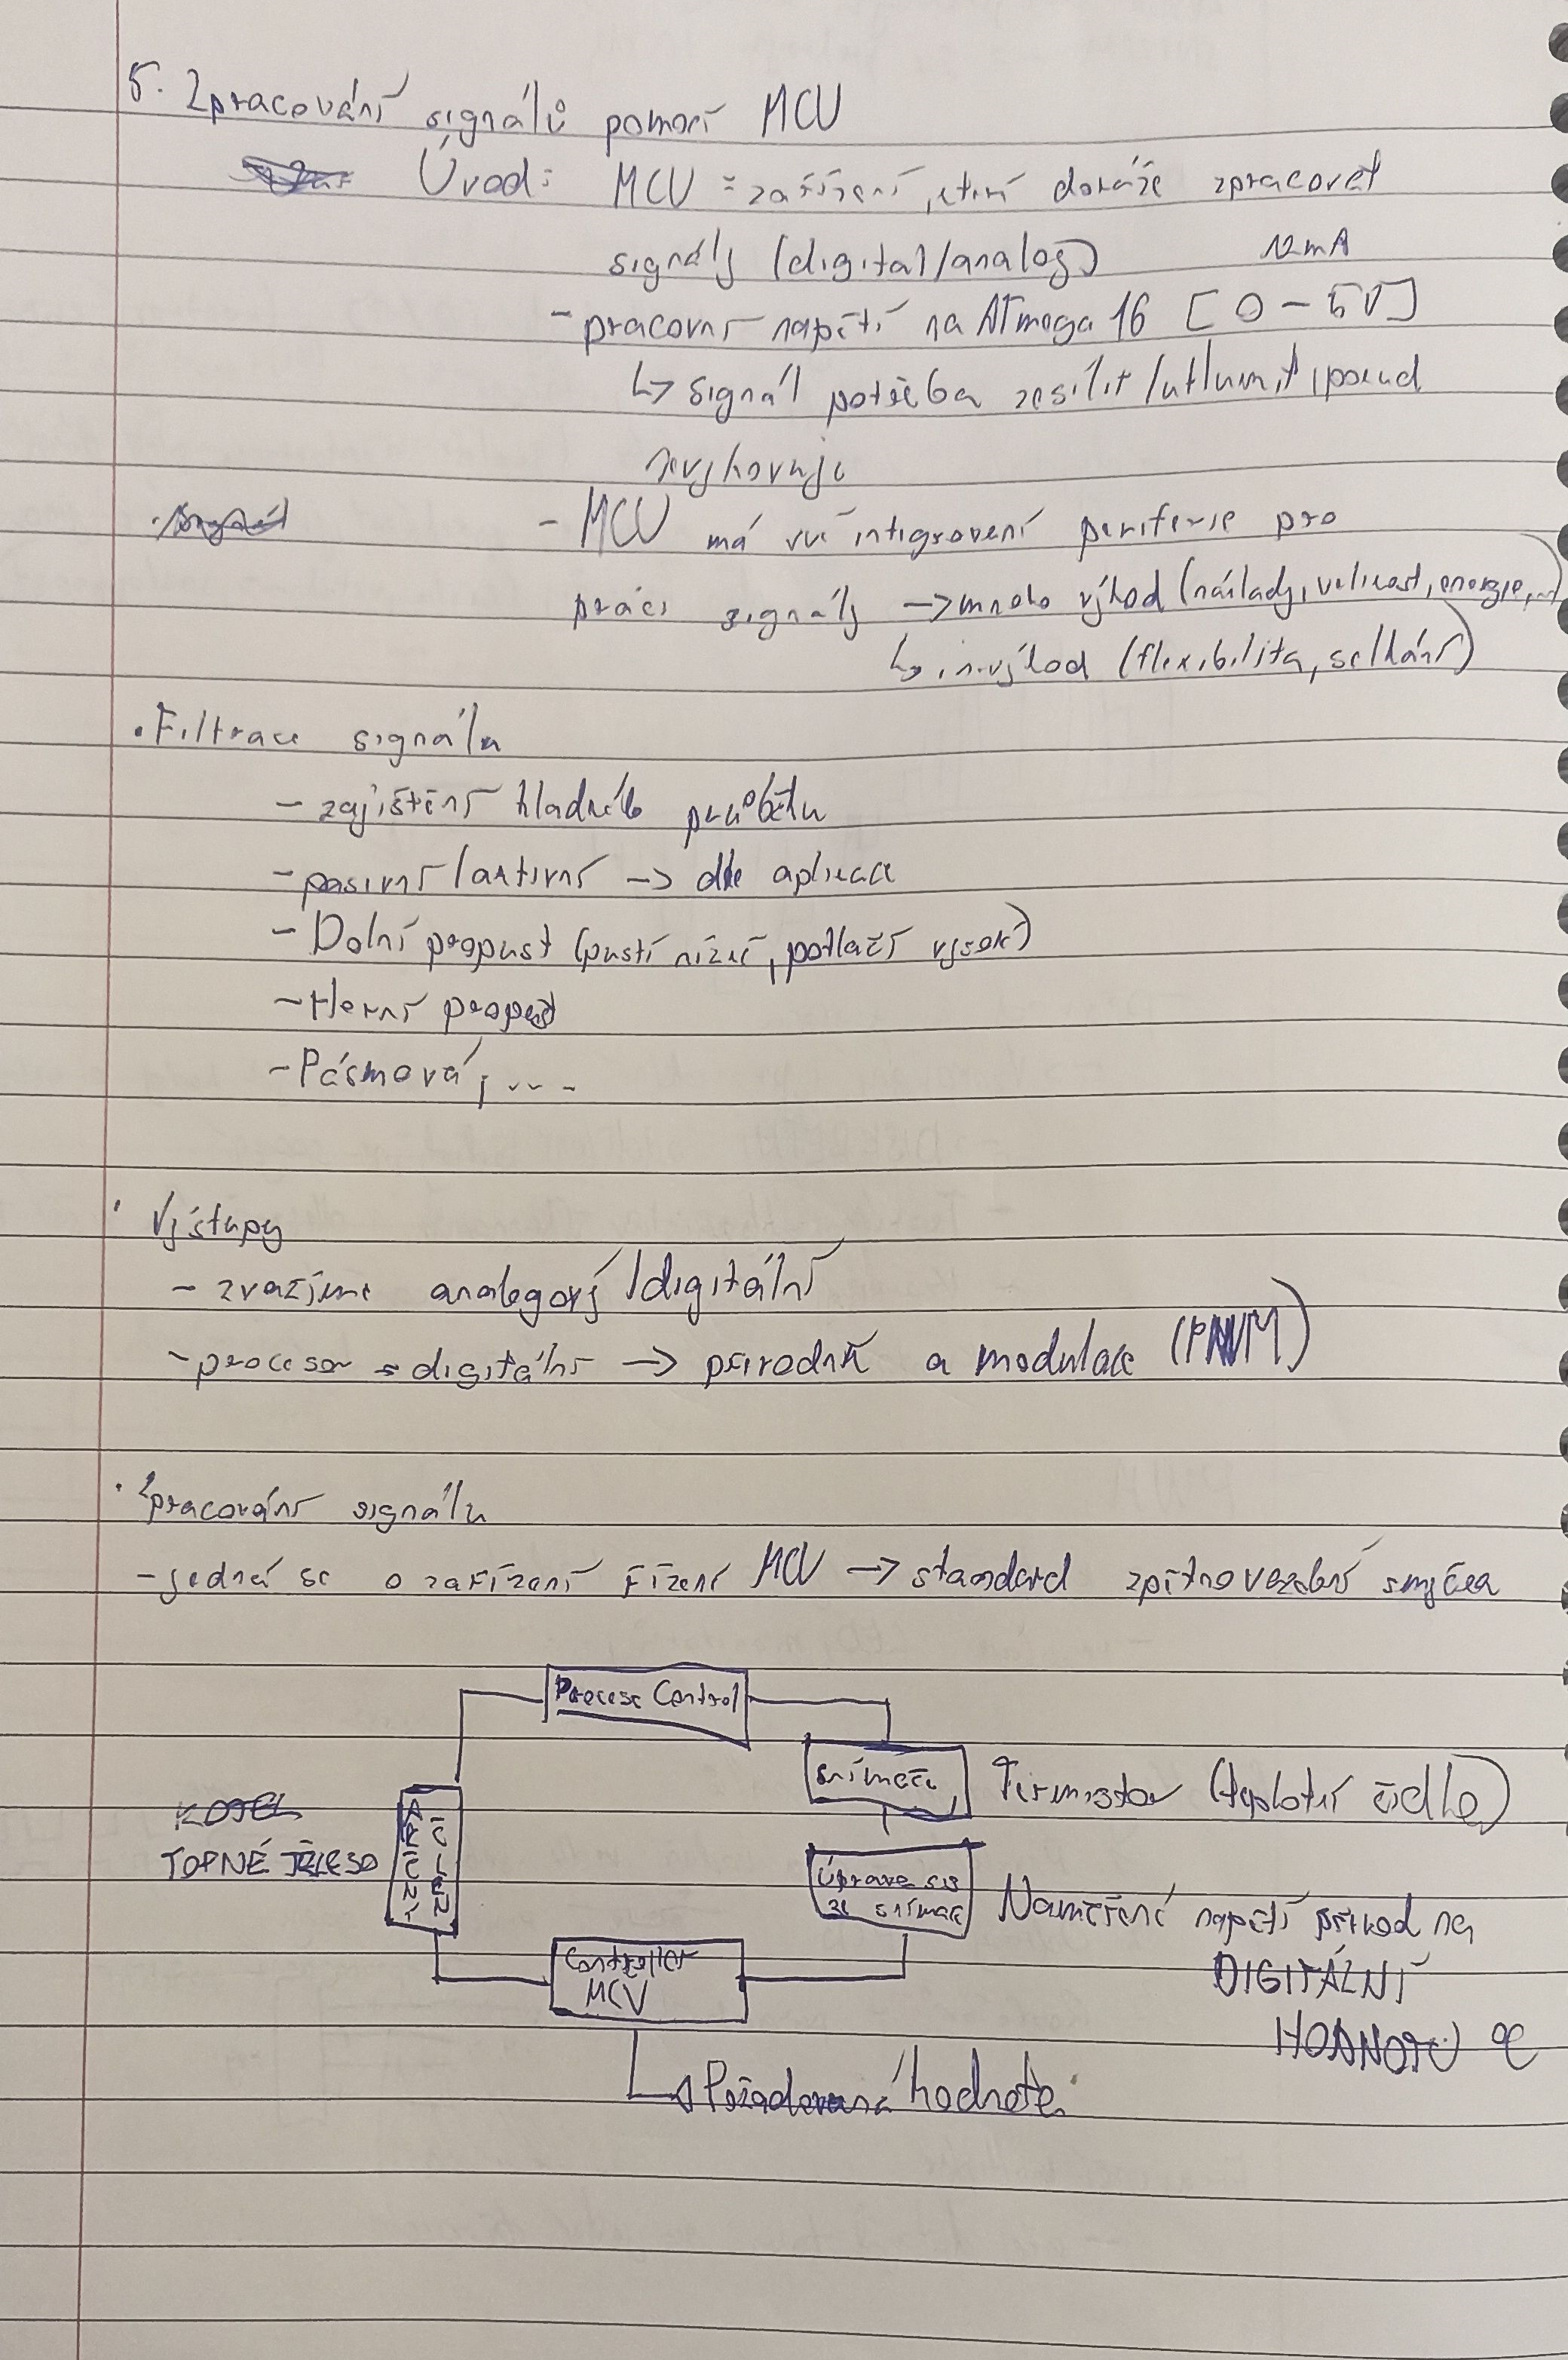 5. Zpracování signálů pomocí MCU
Úvod: MCU = zařízení, které dokáže zpracovat
signály (digital/analog)
12mA
- pracovní napětí na ATmega 16 [0-5V]
↳ signál potřeba zesílit/utlumit, pokud
nevyhovuje
- MCU má své integrovaní periferie pro
práci signály → mnoho výhod (náklady, velikost, energie,
↳ i nevýhod (flexibilita, selhání)
• Filtrace signálu
- zajištění hladkého průběhu
- pasivní/aktivní → dle aplikace
- Dolní propust (pustí nízké, potlačí vysok)
- Horní propust
- Pásmová, ....
• Výstupy
- analogový/digitální
- procesor = digitální → převodník a modulace (PWM)
• Zpracování signálu
- jedná se o zařízení řízení MCU → standard zpětnovazební smyčka
Process Control
snímače
Termistor (teplotní čidlo)
KOTEL
TOPNÉ TĚLESO
Úprava sig
ze snímač
Naměřené napětí převod na
DIGITÁLNÍ
HODNOTU °C
Controller
MCU
Požadovaná hodnota